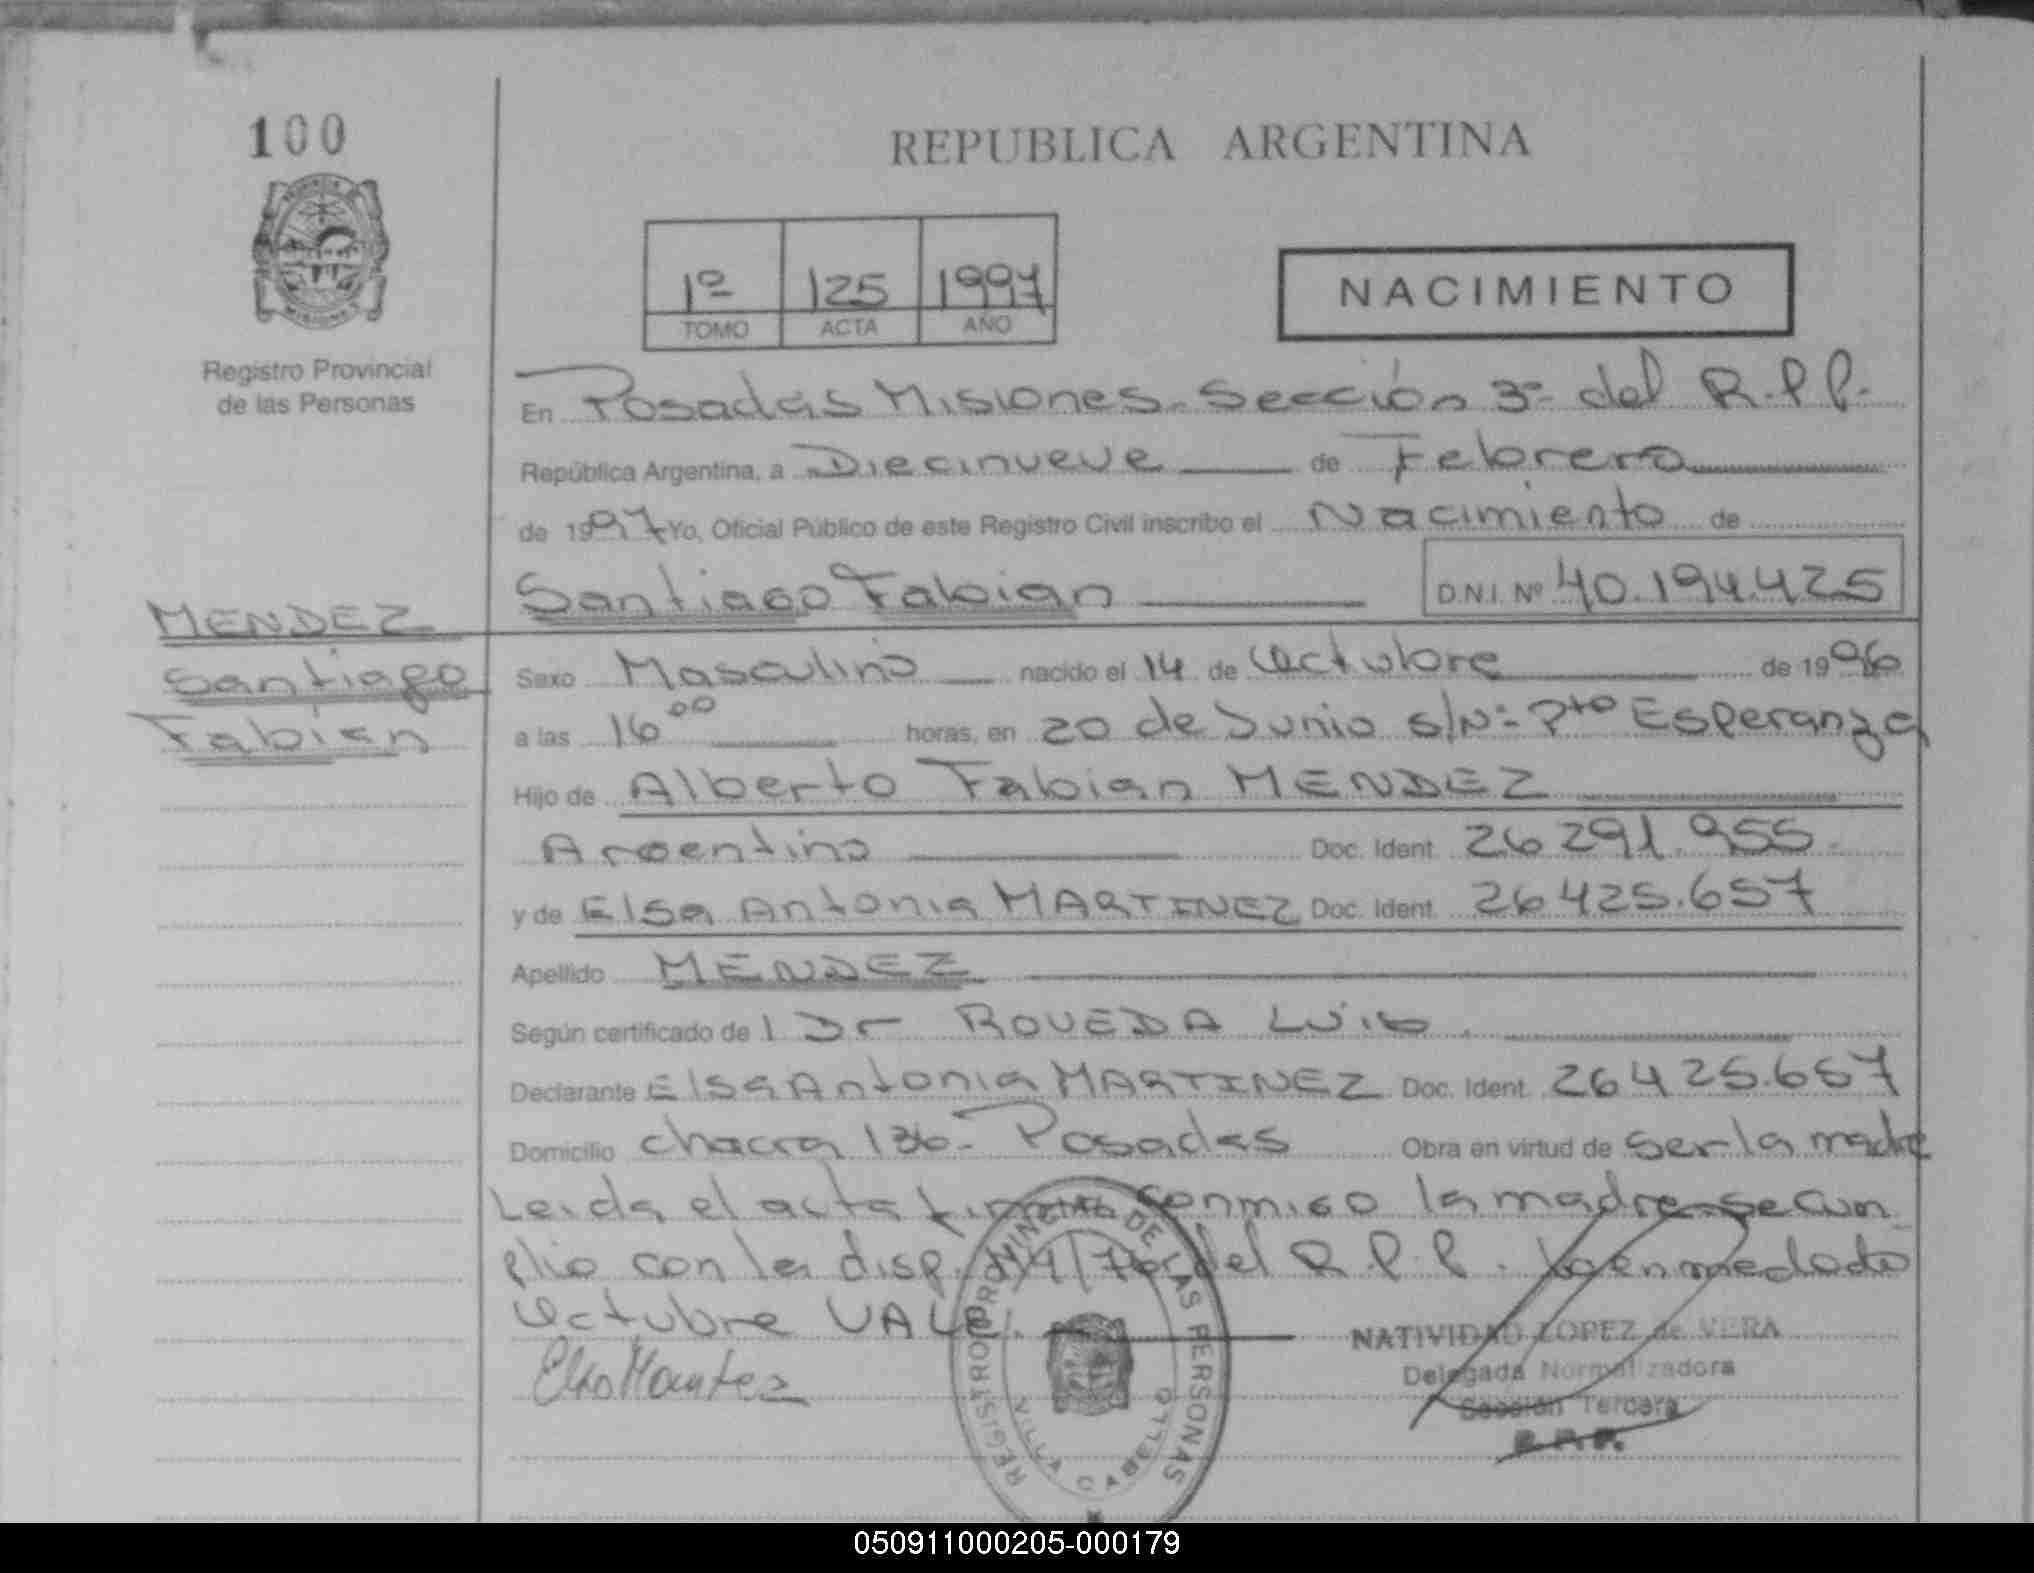 100
REPUBLICA ARGENTINA
1º 125 1997
TOMO ACTA AÑO
NACIMIENTO
Registro Provincial
de las Personas
En Posadas Misiones. Sección 3º del R.P.P.
República Argentina, a Diecinueve de Febrero
de 1997 Yo, Oficial Público de este Registro Civil inscribo el Nacimiento de
Santiago Fabian D.N.I. Nº 40.194.425
MENDEZ
Santiago
Fabián
Sexo Masculino nacido el 14 de Octubre de 1996
a las 16⁰⁰ horas, en 20 de Junio s/Nº Pto Esperanza
Hijo de Alberto Fabian MENDEZ
Argentino Doc. Ident. 26 291.955
y de Elsa Antonia MARTINEZ Doc. Ident. 26 425.657
Apellido MENDEZ
Según certificado de l Dr ROVEDA Luis.
Declarante Elsa Antonia MARTINEZ Doc. Ident. 26 425.657
Domicilio chacra 136- Posadas Obra en virtud de ser la madre
Leida el acta firma conmigo la madre se cum
plio con la disp. del R.P.P. Lo enmedado
Octubre VALE.
NATIVIDAD LOPEZ de VERA
Delegada Normalizadora
Sección Tercera
R.P.P.
REGISTRO PROVINCIAL DE LAS PERSONAS
VILLA CABELLO
050911000205-000179